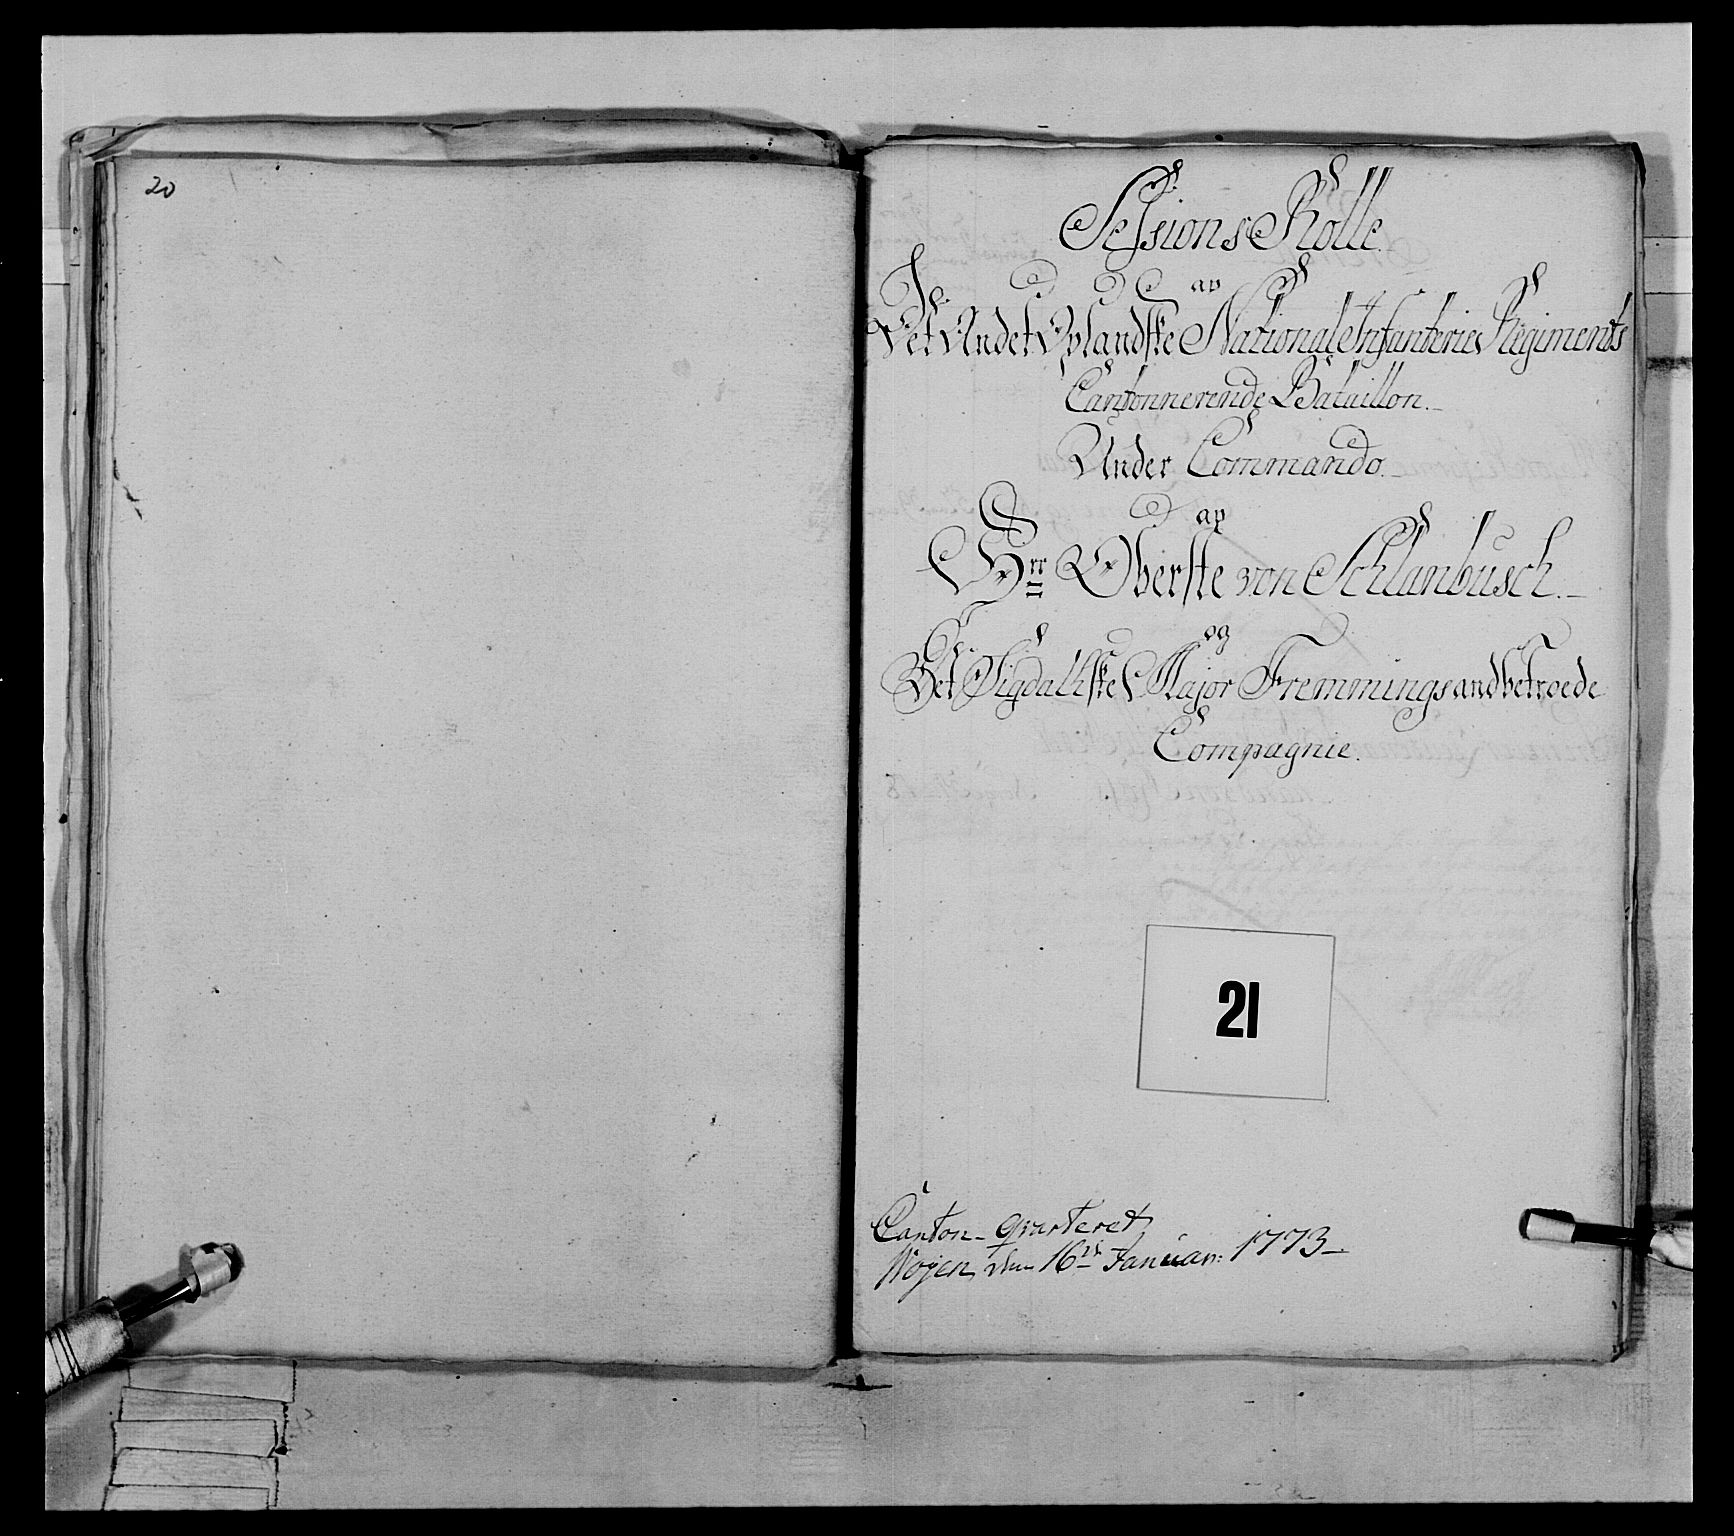 20
Sessions Rolle
av
Det Andet Oplandske National Infanterie Regiments
Cantonnerende Bataillon.
Under Commando.
av
Hrr Oberste von Schlanbusch.
og
Det Sigdalske Major Fremmings andbetroede
Compagnie.
21
Canton-qvarteret
Wøyen den 16de Januar: 1773